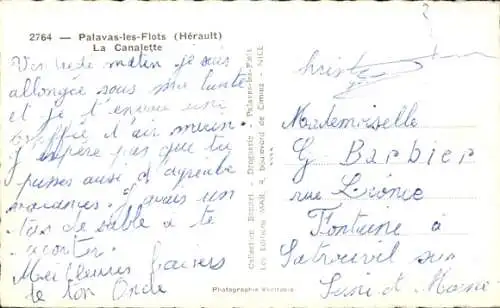 2764 — Palavas-les-Flots (Hérault)
La Canalette
matin je suis
allongée sous ma tente
et je t'envoie une
d'air marin
J'espère pas que tu
passes aussi d'agréable
vacances. J'aurais un
tas de sable à te
Meilleurs baisers
de ton
Collection Bonart - Droguerie - Palavas-les-Flots
Les Editions MAR, 4, Boulevard de Cimiez - NICE
Photographie Véritable
Mademoiselle
G Barbier
rue Léonie
Fontaine à
sur
Seine et Marne